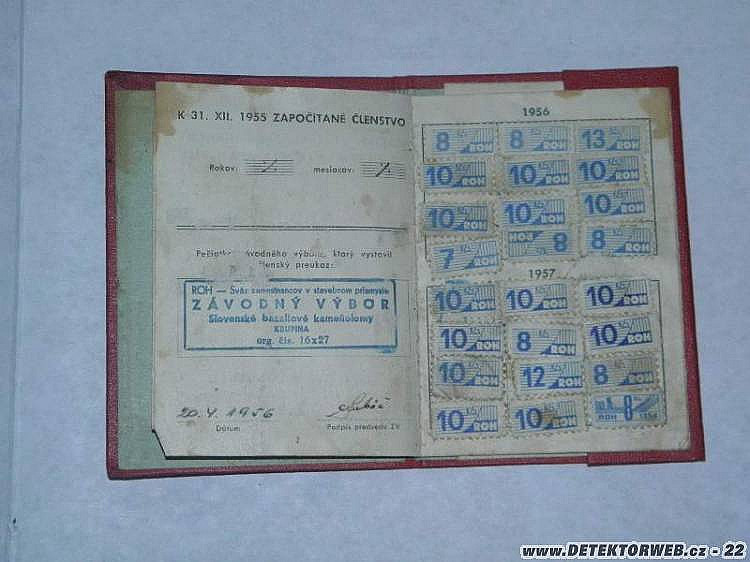 K 31. XII. 1955 ZAPOČÍTANÉ ČLENSTVO
Rokov:
mesiacov:
závodného výboru, ktorý vystavil
členský preukaz:
ROH — Sväz zamestnancov v stavebnom priemysle
ZÁVODNÝ VÝBOR
Slovenské bazaltové kameňolomy
KRUPINA
org. čís. 16x27
20. 4. 1956
Dátum
Podpis predsedu ZV
2
1956
8 Kčs ROH 8 Kčs ROH 13 Kčs ROH
10 Kčs ROH 10 Kčs ROH 10 Kčs ROH
10 Kčs ROH 10 Kčs ROH 10 Kčs ROH
7 Kčs ROH 8 ROH 8 Kčs ROH
1957
10 Kčs ROH 10 Kčs ROH 10 Kčs ROH
10 Kčs ROH 8 Kčs ROH 10 Kčs ROH
10 Kčs ROH 12 Kčs ROH 8 Kčs ROH
10 Kčs ROH 10 Kčs ROH ROH 8
www.DETEKTORWEB.cz - 22